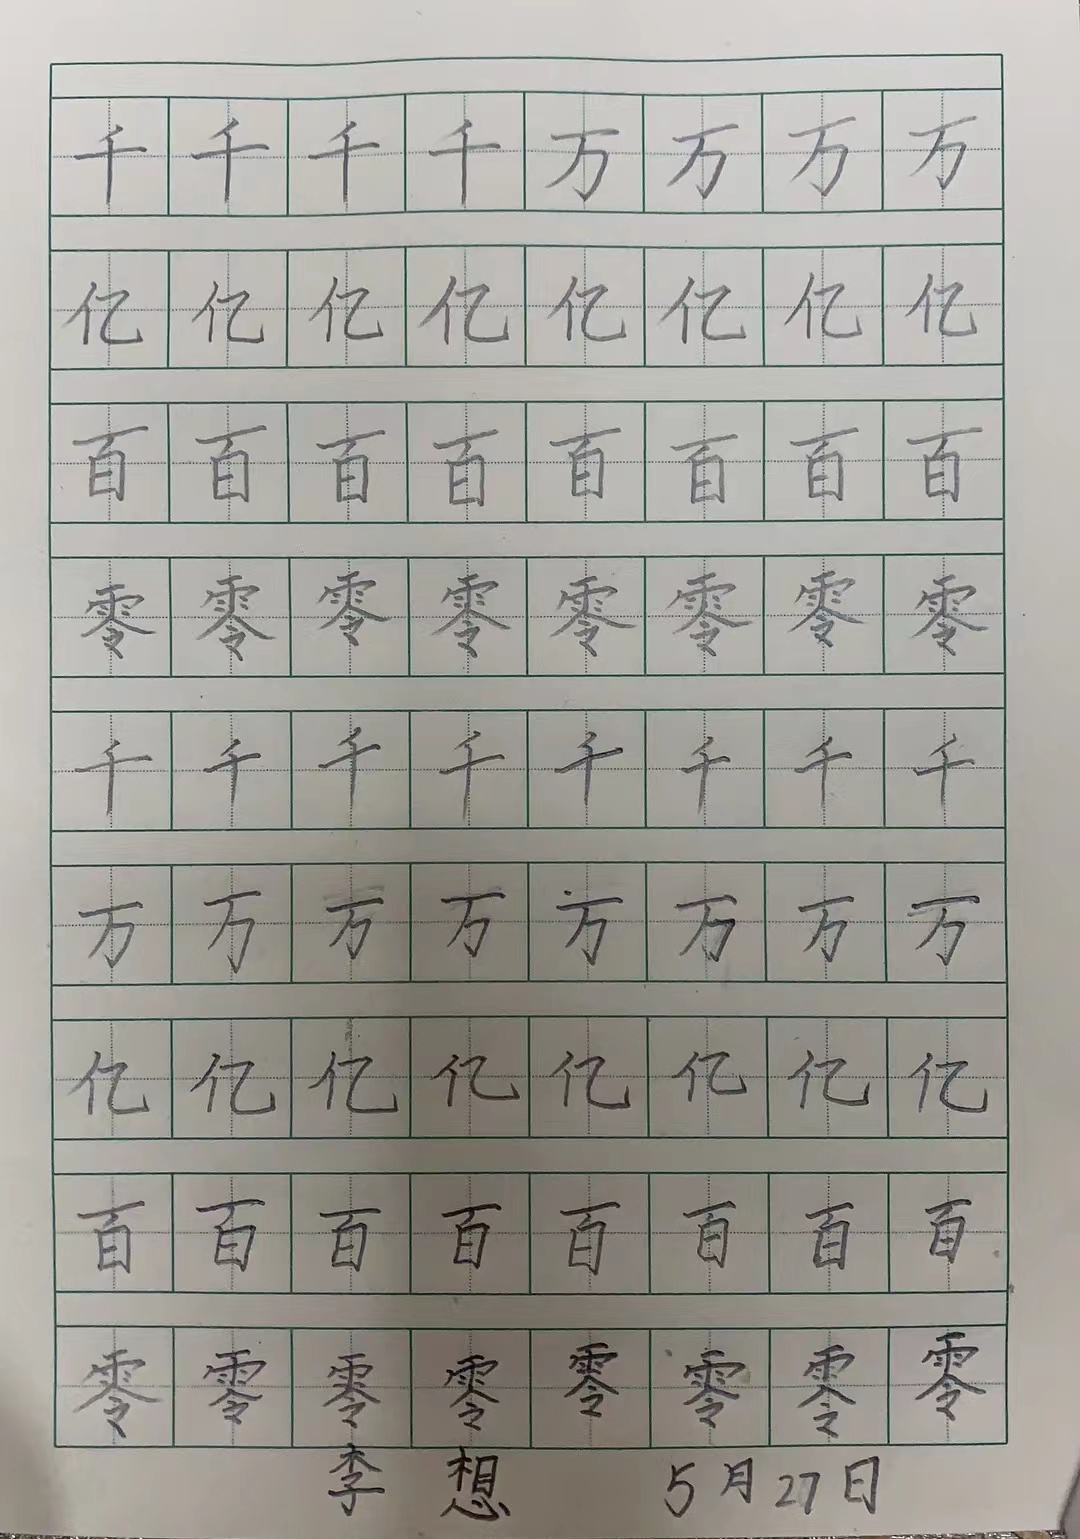 千千千千万万万万
亿亿亿亿亿亿亿亿
百百百百百百百百
零零零零零零零零
千千千千千千千千
万万万万方万万万
亿亿亿亿亿亿亿亿
百百百百百百百百
零零零零零零零零
李想 5月27日